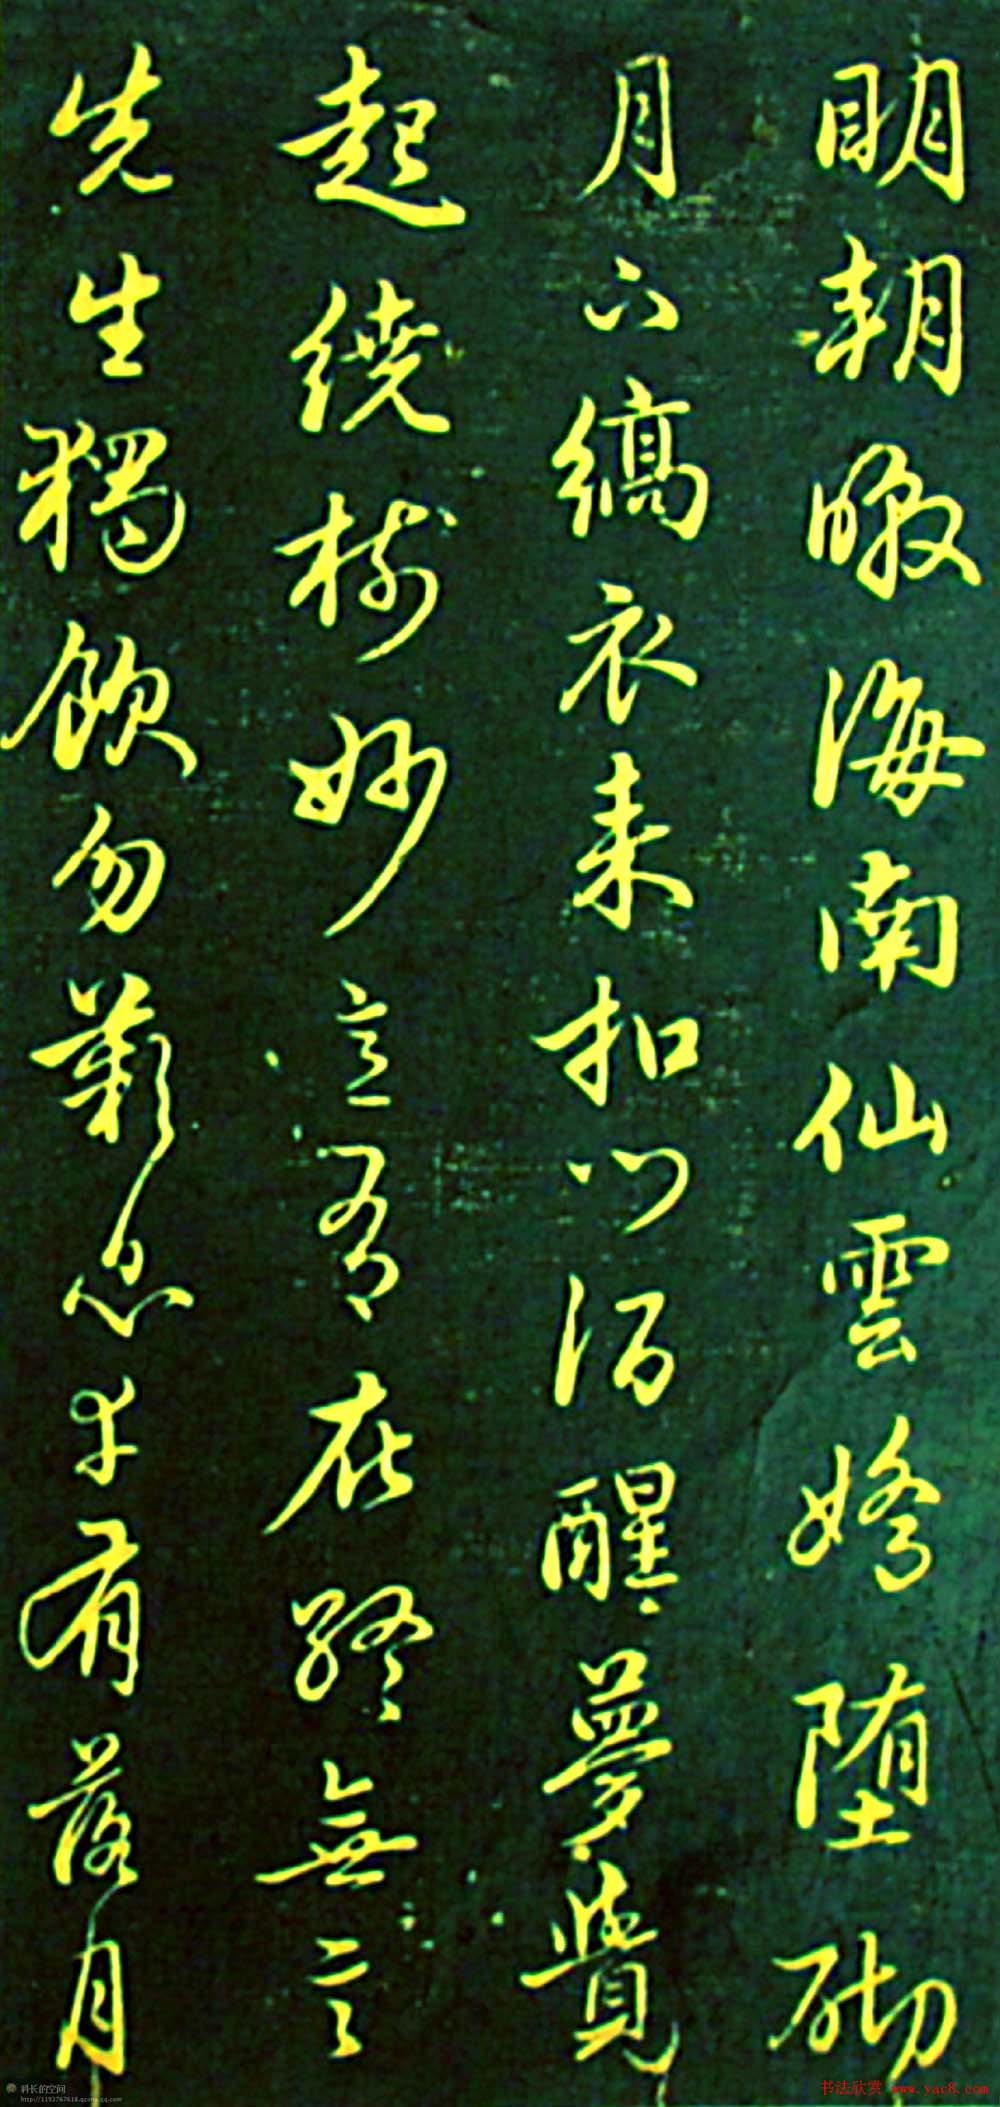 明朝暾海南仙雲嬌堕砌
月下縞衣来扣門酒醒夢覺
起繞樹妙意有在終無言
先生獨飲勿歎息幸有落月
科长的空间
http://1193767618.qzone.qq.com
书法欣赏 www.yac8.com